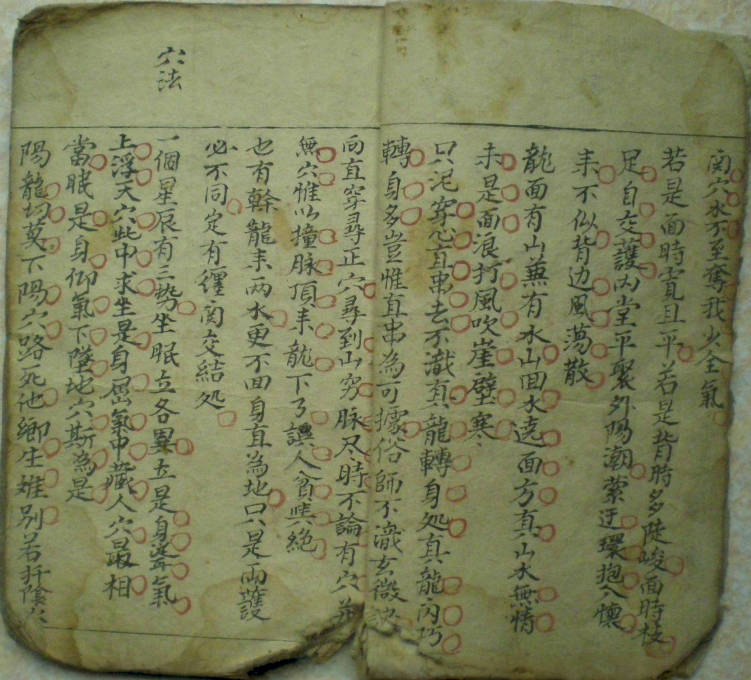 関穴水不至奪我火全氣
若是面時寬且平若是背時多陡峻面時枝
足自交護內堂平聚外陽潮縈迂環抱入懷
来不似背边風蕩散
龍面有山兼有水山回水遶面方真山水無情
来是面浪打風吹崖壁寒
只泥穿心直串去不識真龍轉身処真龍閃巧
轉身多豈惟直串為可據俗師不識玄微訣
向直穿尋正穴尋到山窮脉尽時不論有穴
無穴惟以撞脉頂来龍下了誤人貧與絶
也有幹龍来両水更不回身直為地只是両護
必不同定有纏関交結処
穴法
一個星辰有三勢坐眠立各異立是身聳氣
上浮天穴此中求坐是身屈氣中藏人穴最相
當眠是身仰氣下墜地穴斯為是
陽龍切莫下陽穴路死他鄉生離別若扦陰穴